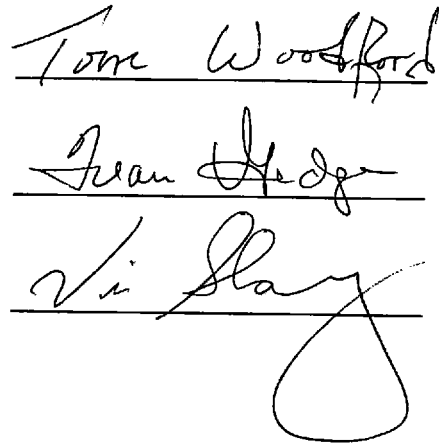 Tom Woodford
Ivan Hedge
Vi Slay